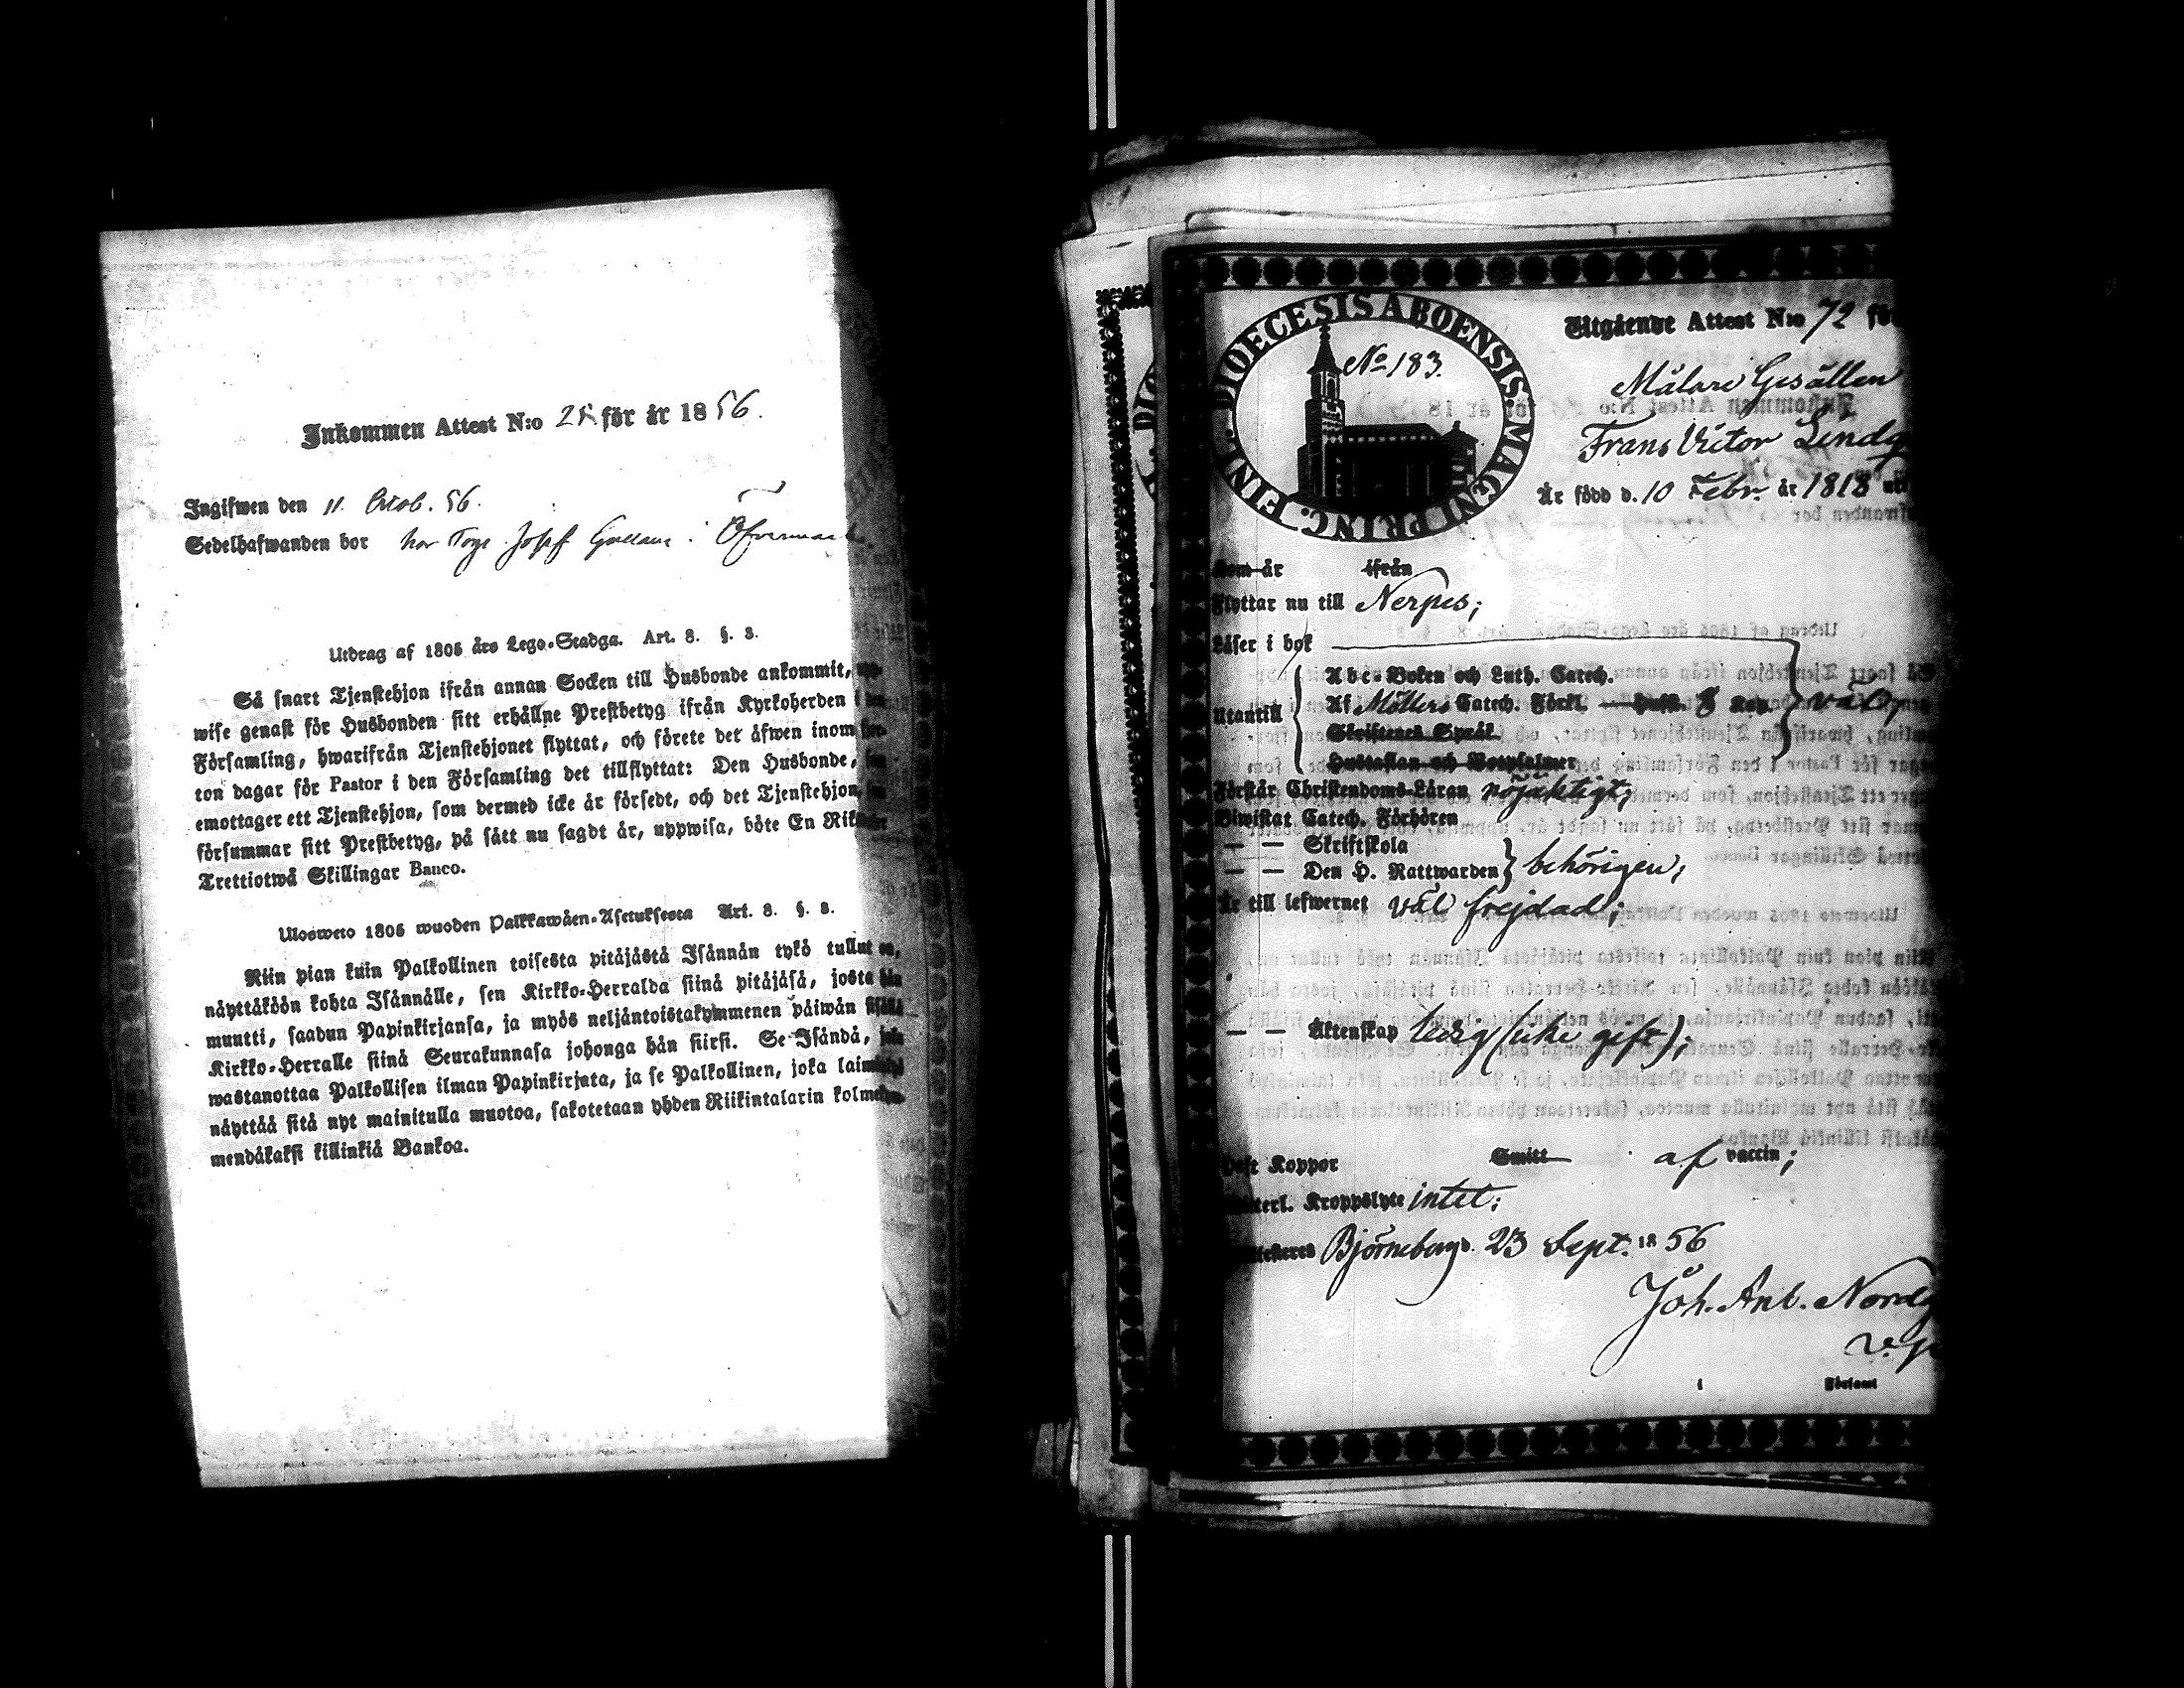 Inkommen Attest N:o 25 för år 1856.
Ingifwen den 11 Octob. 56.
Sedelhafwanden bor hos Torp. Josef i Öfvermark
Utdrag af 1805 års Lego-Stadga. Art. 8. §. 3.
Så snart Tjenstehjon ifrån annan Socken till Husbonde ankommit, upp-
wise genast för Husbonden sitt erhållne Prestbetyg ifrån Kyrkoherden i den
Församling, hwarifrån Tjenstehjonet flyttat, och förete det äfwen inom fjor-
ton dagar för Pastor i den Församling det tillflyttat: Den Husbonde, som
emottager ett Tjenstehjon, som dermed icke är försedt, och det Tjenstehjon, som
försummar sitt Prestbetyg, på sätt nu sagdt är, uppwisa, böte En Riksdaler
Trettiotwå Skillingar Banco.
Ulosweto 1805 wuoden Palkkawäen-Asetuksesta Art. 8. §. 3.
Niin pian kuin Palkollinen toisesta pitäjästä Isännän tykö tullut on,
näyttäköön kohta Isännälle, sen Kirkko-Herralda siinä pitäjäsä, josta hän
muutti, saadun Papinkirjansa, ja myös neljäntoistakymmenen päiwän sisällä
Kirkko-Herralle siinä Seurakunnasa johonga hän siirsi. Se Isändä, joka
wastanottaa Palkollisen ilman Papinkirjata, ja se Palkollinen, joka laiminlyö
näyttää sitä nyt mainitulla muotoa, sakotetaan yhden Riikintalarin kolmekym-
mendäkaksi killinkiä Bankoa.
DIOECESIS ABOENSIS. MAGNI PRINC. FINL.
No 183.
Utgående Attest N:o 72 för
Målare Gesällen
Frans Victor Lindq
Är född d. 10 Febr. år 1818
Kom år ifrån
Flyttar nu till Nerpes;
Läser i bok
Utantill
Abc-Boken och Luth. Catech.
Af Möllers Catech. Förkl.
väl;
Skriftenes Språk.
Hustaflan och Botpsalmer
Förstår Christendoms-Läran nöjaktigt;
Biwistat Catech. Förhören
— — Skriftskola
— — Den H. Nattwarden behörigen;
Är till lefwernet väl frejdad;
— — Äktenskap ledig (icke gift);
Haft Koppor Smitt af vaccin;
Kroppslyte intet;
Björneborg d. 23 Sept. 1856
Joh. Ant. Nordg
v. p
i Församl